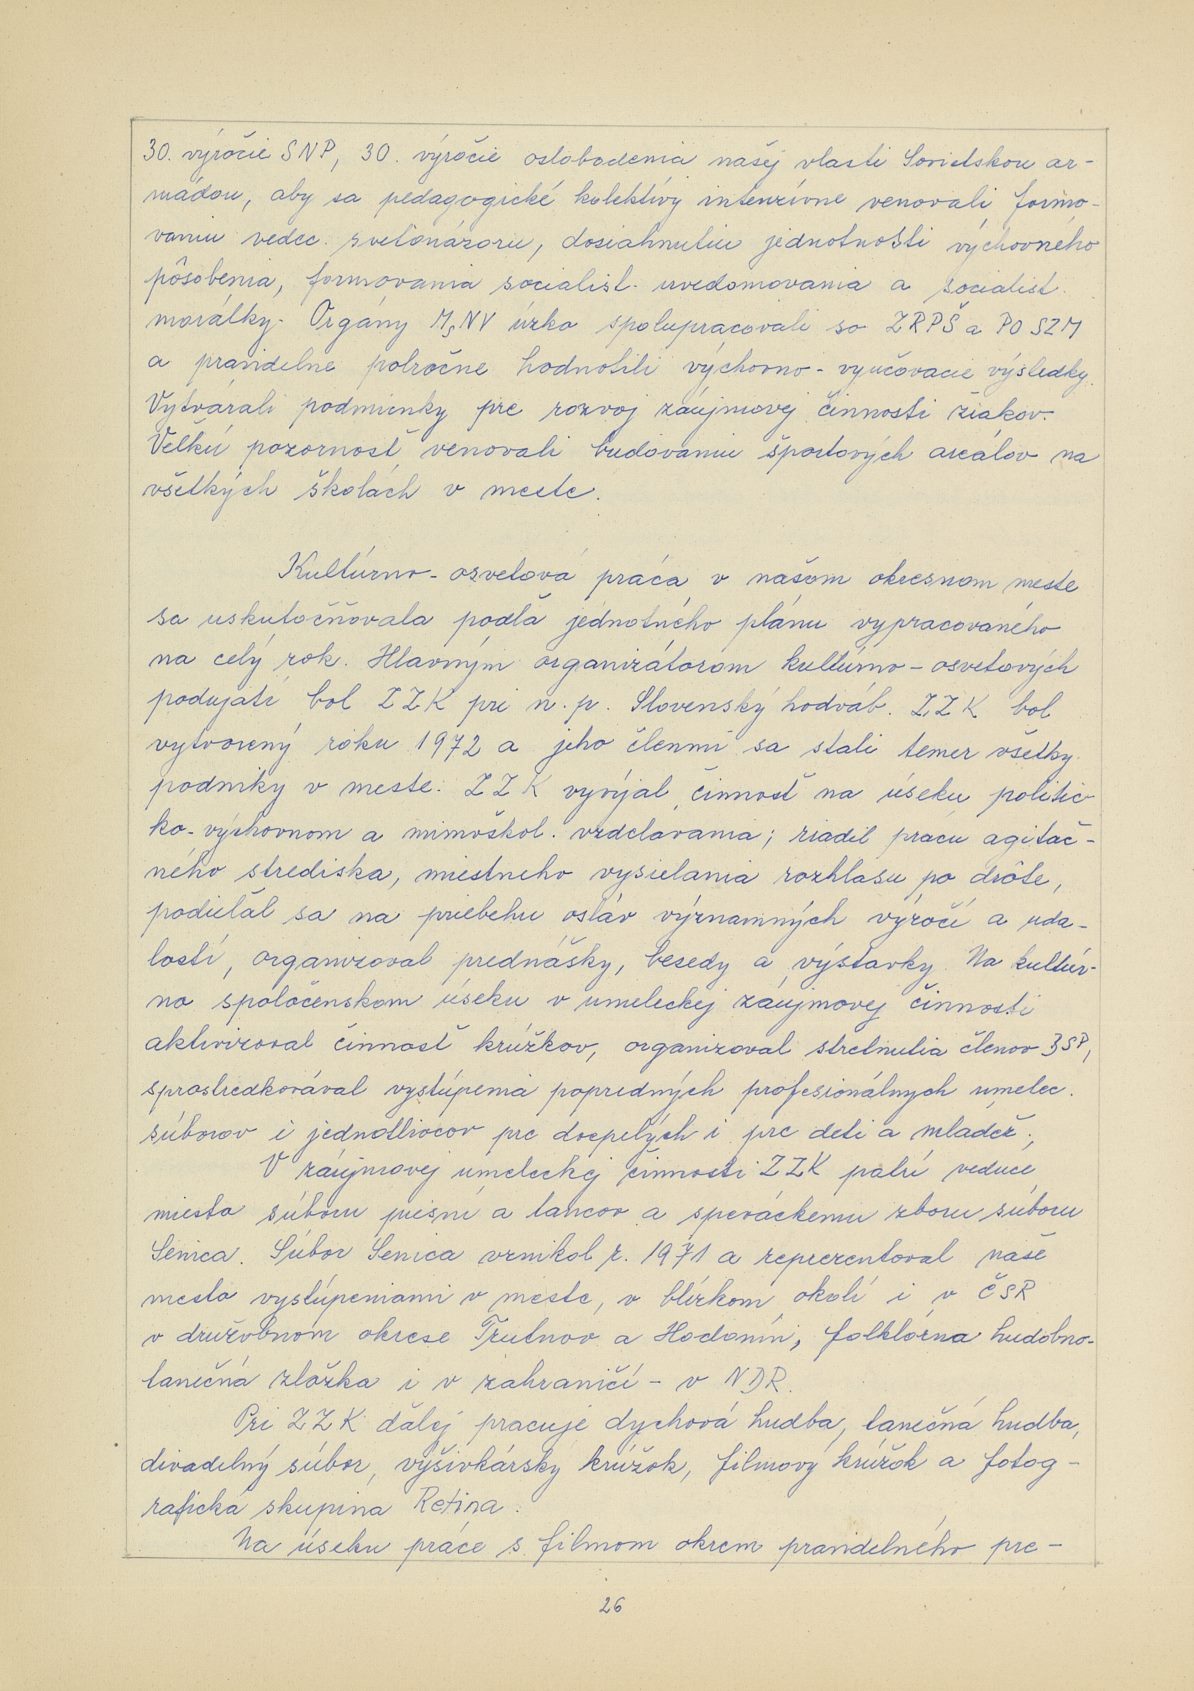 30. výročie SNP, 30. výročie oslobodenia našej vlasti Sovietskou ar-
mádou, aby sa pedagogické kolektívy intenzívne venovali formo-
vaniu vedec. svetonázoru, dosiahnutiu jednotnosti výchovného
pôsobenia, formovania socialist. uvedomovania a socialist.
morálky. Orgány MsNV úzko spolupracovali so ZRPŠ a PO SZM
a pravidelne polročne hodnotili výchovno-vyučovacie výsledky.
Vytvárali podmienky pre rozvoj záujmovej činnosti žiakov.
Veľkú pozornosť venovali budovaniu športových areálov na
všetkých školách v meste.
Kultúrno-osvetová práca v našom okresnom meste
sa uskutočňovala podľa jednotného plánu vypracovaného
na celý rok. Hlavným organizátorom kultúrno-osvetových
podujatí bol ZZK pri n. p. Slovenský hodváb. ZZK bol
vytvorený roku 1972 a jeho členmi sa stali temer všetky
podniky v meste. ZZK vyvýjal činnosť na úseku politic-
ko-výchovnom a mimoškol. vzdelavania; riadil pracu agitač-
ného strediska, miestneho vysielania rozhlasu po drôte,
podieľal sa na priebehu osláv významných výročí a uda-
lostí, organizoval prednášky, besedy a výstavky. Na kultúr-
no spoločenskom úseku v umeleckej záujmovej činnosti
aktivizoval činnosť krúžkov, organizoval stretnutia členov BSP,
sprostredkovával vystúpenia popredných profesionálnych umelec.
súborov i jednotlivcov pre dospelých i pre deti a mládež.
V záujmovej umeleckej činnosti ZZK patrí vedúce
miesto súboru piesní a tancov a speváckemu zboru súboru
Senica. Súbor Senica vznikol r. 1971 a reprezentoval naše
mesto vystúpeniami v meste, v blízkom okolí i v ČSR
v družobnom okrese Trutnov a Hodonín, folklórna hudobno-
tanečná zložka i v zahraničí - v NDR.
Pri ZZK ďalej pracuje dychová hudba, tanečná hudba,
divadelný súbor, výšivkársky krúžok, filmový krúžok a fotog-
rafická skupina Retina.
Na úseku práce s filmom okrem pravidelného pre-
26